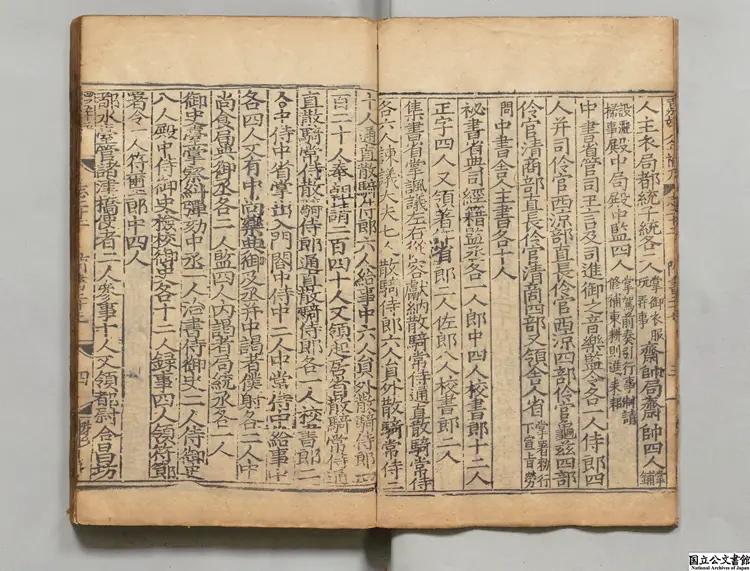 人主衣局都統子統各二人掌御衣服玩弄事齋帥局齋帥四人掌鋪
設灑掃事殿中局殿中監四人掌駕前奏引行事制請修補東耕則進耒耜
中書省管司王言及司進御之音樂監令各一人侍郎四
人并司伶官西涼部直長伶官西涼四部伶官龜玆四部
伶官清商部直長伶官清商四部又領舍人省掌署勑行下宣旨勞
問中書舍人主書各十人
祕書省典司經籍監丞各一人郎中四人校書郎十二人
正字四人又領著作省郎二人佐郎八人校書郎二人
集書省掌諷議左右從容獻納散騎常侍通直散騎常侍
各六人諫議大夫七人散騎侍郎六人員外散騎常侍二
十人通直散騎侍郎六人給事中六人員外散騎侍郎一
百二十人奉朝請二百四十人又領起居省散騎常侍通
直散騎常侍散騎侍郎通直散騎侍郎各一人校書郎二
人中侍中省掌出入門閤中侍中二人中常侍中給事中
各四人又有中尚藥典御及丞并中謁者僕射各二人中
尚食局典御丞各二人監四人內謁者局統丞各一人
御史臺掌察糾彈劾中丞一人治書侍御史二人侍御史
八人殿中侍御史檢校御史各十二人錄事四人領符節
署令一人符璽郎中四人
都水臺管諸津橋使者二人參事十人又領都尉合昌坊
四
国立公文書館
National Archives of Japan